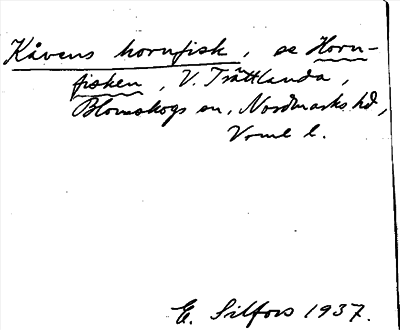 Kåvens hornfisk, se Horn-
fisken, V. Trättlanda,
Blomskogs sn, Nordmarks hd,
Vrml l.
E. Silfors 1937.